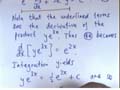 Note that the underlined terms
are the derivative of the
product ye³ˣ. Thus becomes
d/dx [ye³ˣ] = e²ˣ
Integration yields
ye³ˣ = ½e²ˣ + C and so